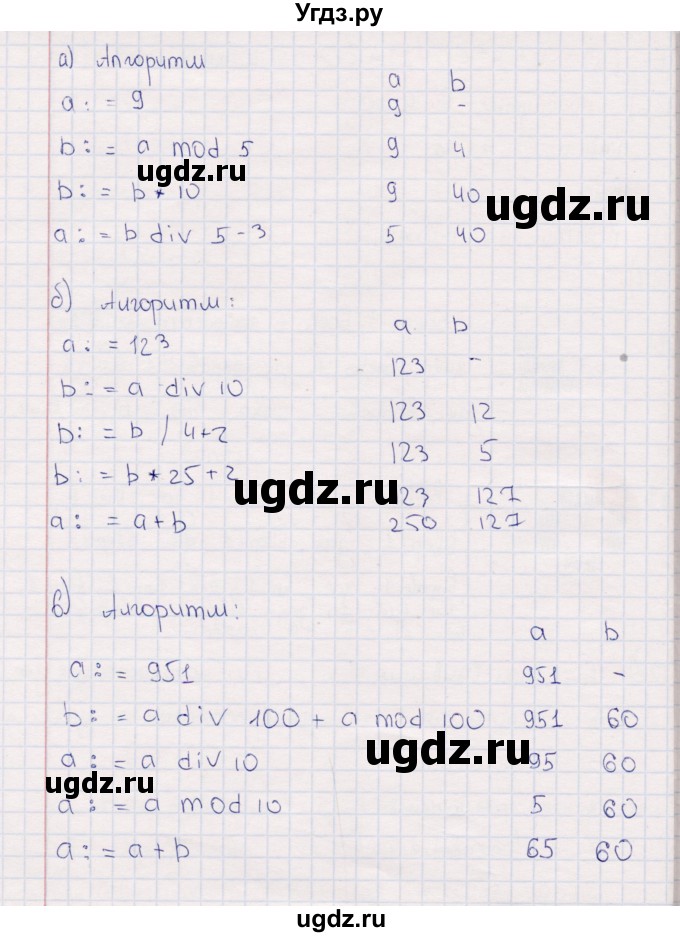 Угдз.ру
а) Алгоритм a b
a := 9 9 -
b := a mod 5 9 4
ugdz.ru
b := b * 10 9 40
ugdz.ru
a := b div 5-3 5 40
б) Алгоритм: a b
a := 123 123 -
b := a div 10 123 12
b := b / 4+2 123 5
b := b * 25+2 123 127
ugdz.ru
a := a+b 250 127
в) Алгоритм: a b
a := 951 951 -
b := a div 100 + a mod 100 951 60
ugdz.ru
a := a div 10 95 60
ugdz.ru
a := a mod 10 5 60
a := a+b 65 60
ugdz.ru